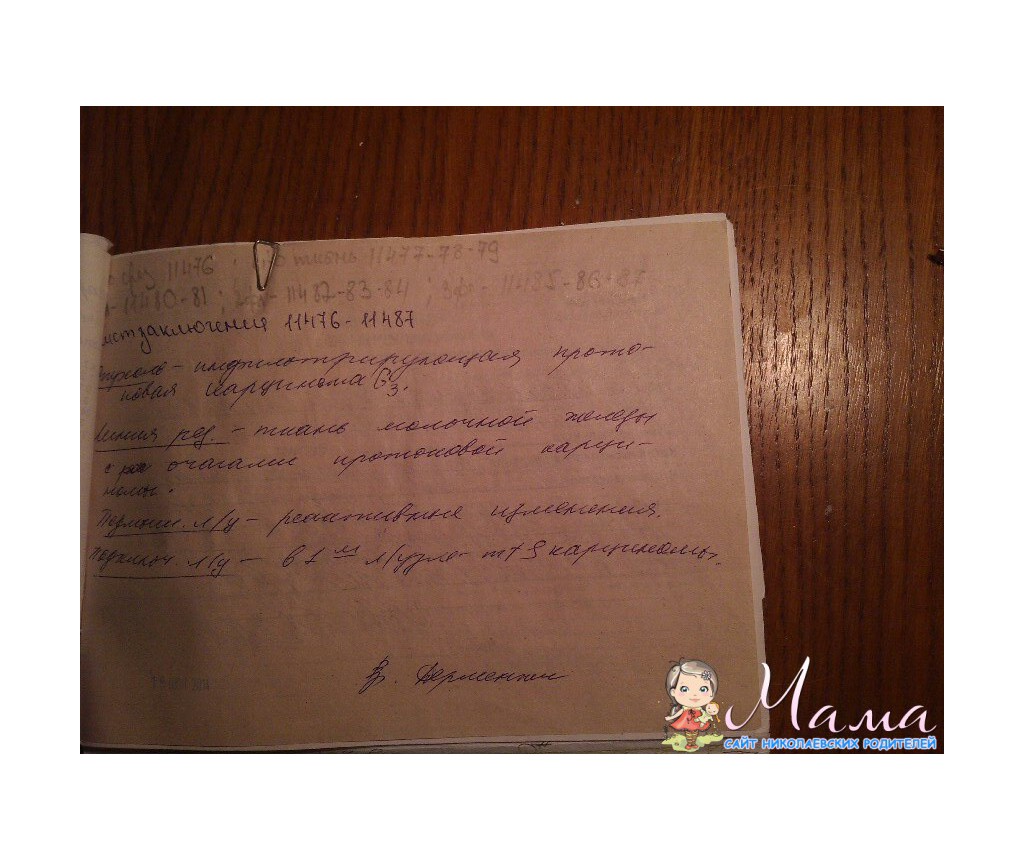 срез 11476 ; ткань 11477-78-79
11480-81 ; 11482-83-84 ; 3фр - 11485-86-87
заключения 11476-11487
Опухоль - инфильтрирующая прото-
ковая карцинома G3.
Линия рез. - ткань молочной железы
с очагами протоковой карци-
номы.
Подмыш. л/у - реактивные изменения.
Подключ. л/у - в 1 м л/узле mts карциномы.
Мама
САЙТ НИКОЛАЕВСКИХ РОДИТЕЛЕЙ